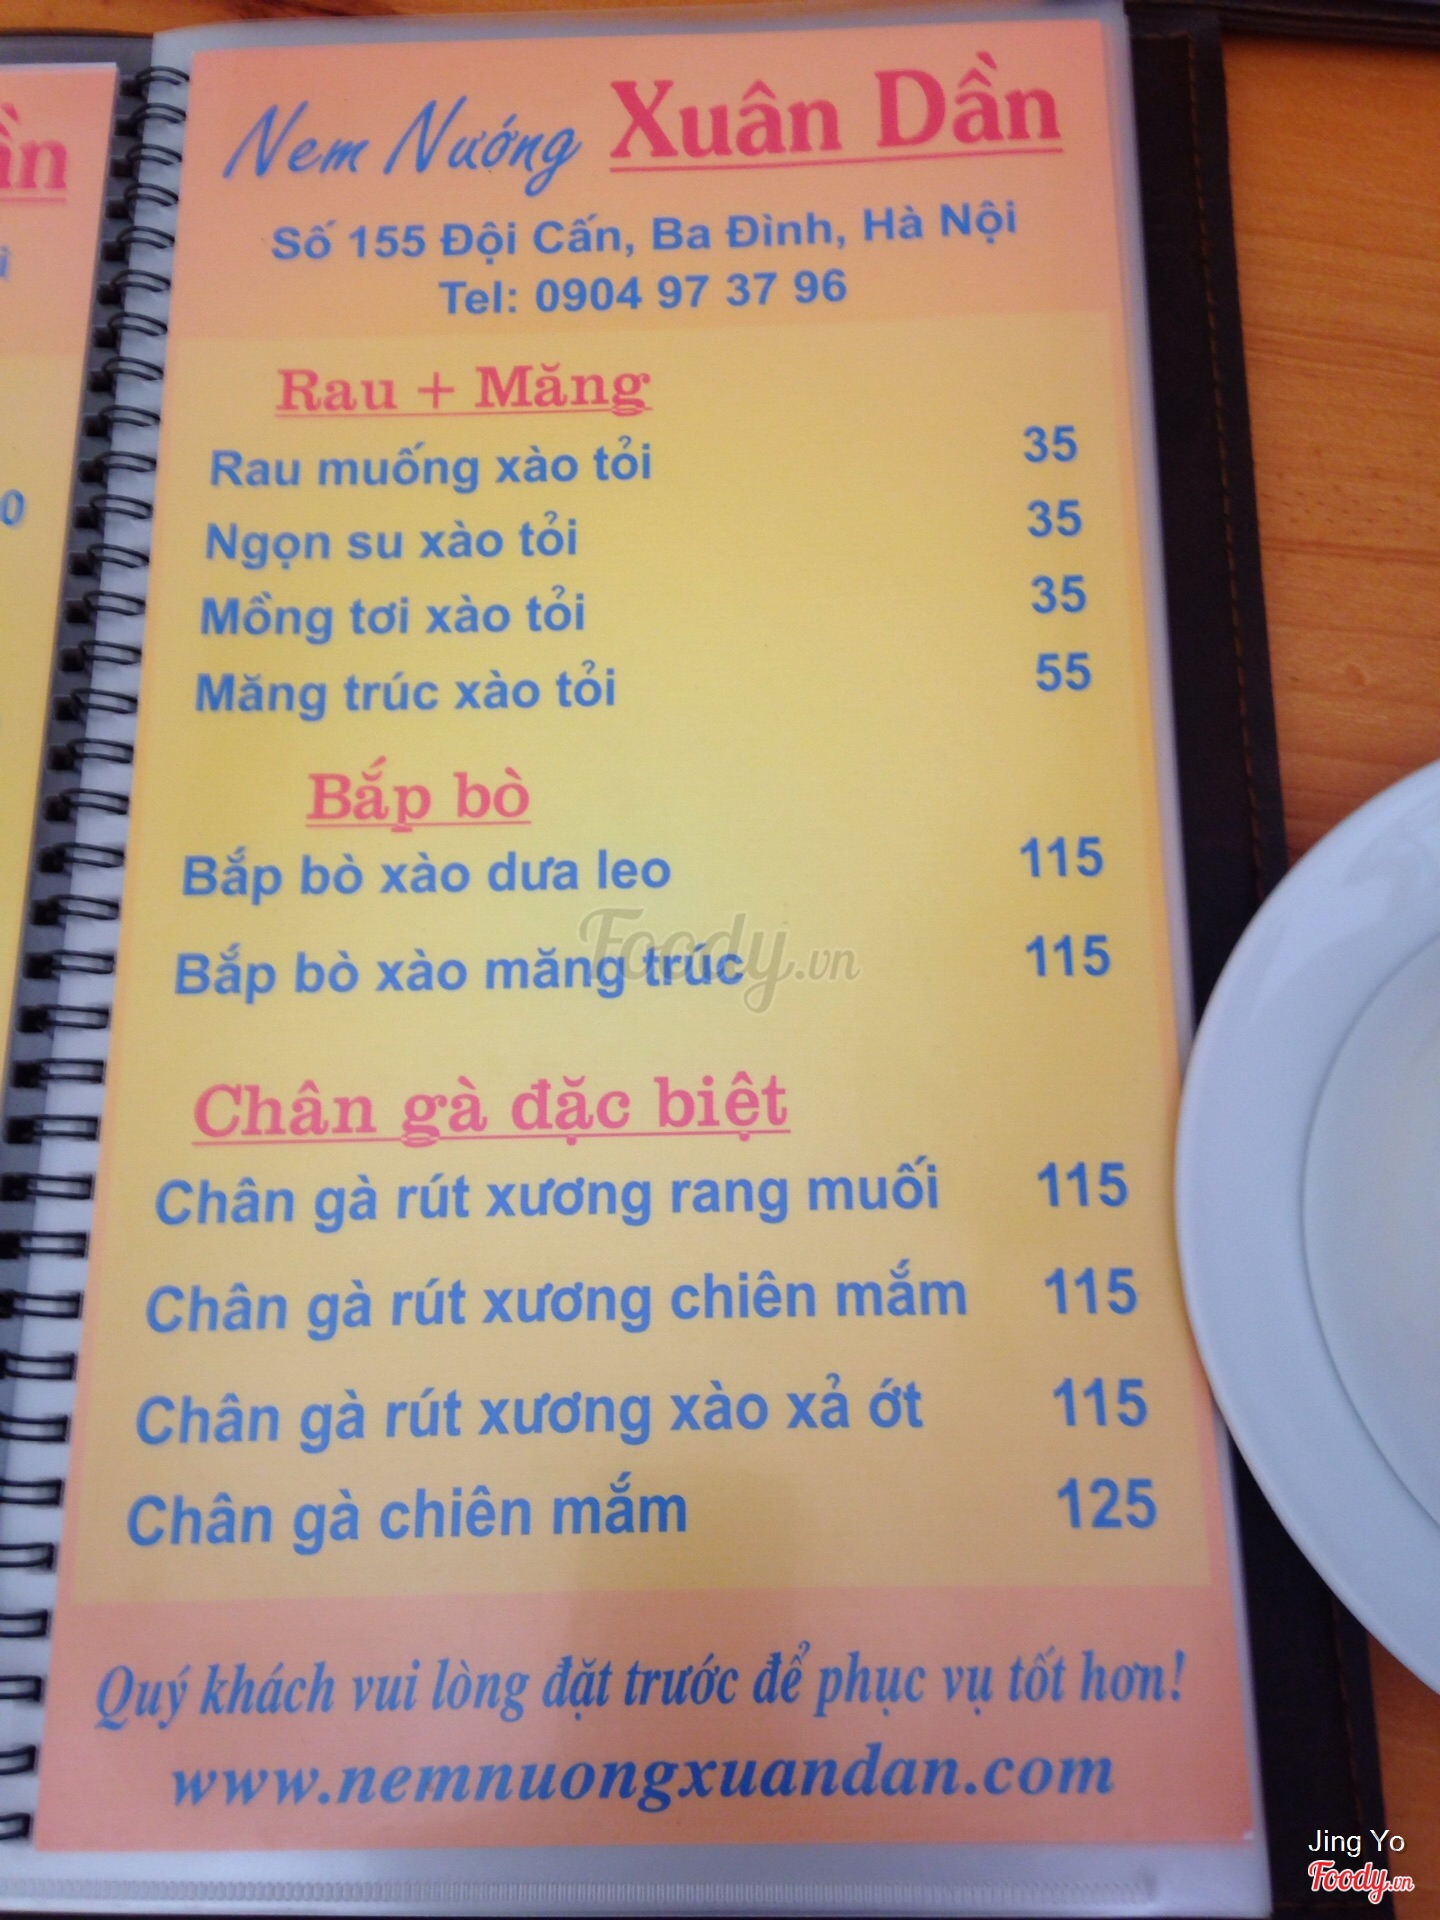 Nem Nướng Xuân Dần
Số 155 Đội Cấn, Ba Đình, Hà Nội
Tel: 0904 97 37 96
Rau + Măng
Rau muống xào tỏi 35
Ngọn su xào tỏi 35
Mồng tơi xào tỏi 35
Măng trúc xào tỏi 55
Bắp bò
Bắp bò xào dưa leo 115
Bắp bò xào măng trúc 115
Foody.vn
Chân gà đặc biệt
Chân gà rút xương rang muối 115
Chân gà rút xương chiên mắm 115
Chân gà rút xương xào xả ớt 115
Chân gà chiên mắm 125
Quý khách vui lòng đặt trước để phục vụ tốt hơn!
www.nemnuongxuandan.com
Jing Yo
Foody.vn